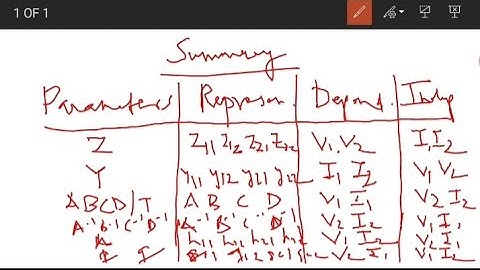 1 OF 1
Summary
Parameters Represen. Depend. Indep
Z Z11 Z12 Z21 Z22 V1 V2 I1 I2
Y y11 y12 y21 y22 I1 I2 V1 V2
ABCD/T A B C D V1 I1 V2 I2
A⁻¹ B⁻¹ C⁻¹ D⁻¹ A⁻¹ B⁻¹ C⁻¹ D⁻¹ V2 I2 V1 I1
h11 h12 h21 h22 V1 I2 V2 I1
V2 I1 V1 I2